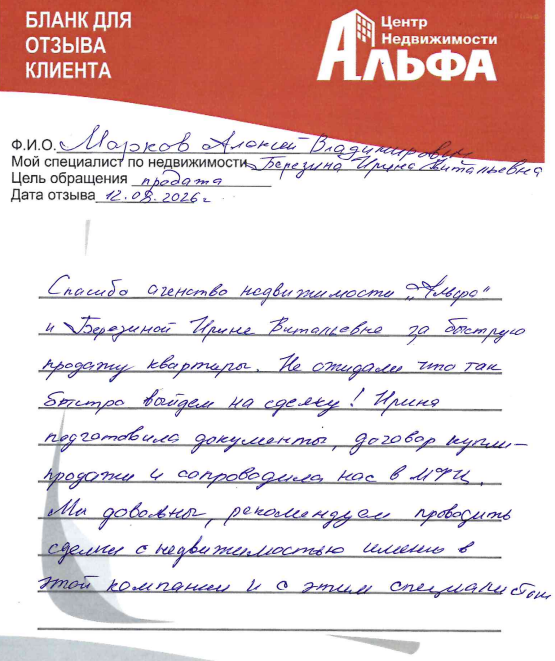 БЛАНК ДЛЯ
ОТЗЫВА
КЛИЕНТА
Центр
Недвижимости
АЛЬФА
Ф.И.О. Марков Алексей Владимирович
Мой специалист по недвижимости Березина Ирина Витальевна
Цель обращения продата
Дата отзыва 12.08.2026г
Спасибо агенство недвижимости „Альфа"
и Березиной Ирине Витальевне за быструю
продажу квартиры. Не ожидали что так
быстро выйдем на сделку! Ирина
подготовила документы, договор купли-
продажи и сопроводила нас в МФЦ.
Мы довольны, рекомендуем проводить
сделки с недвижимостью именно в
этой компании и с этим специалистом